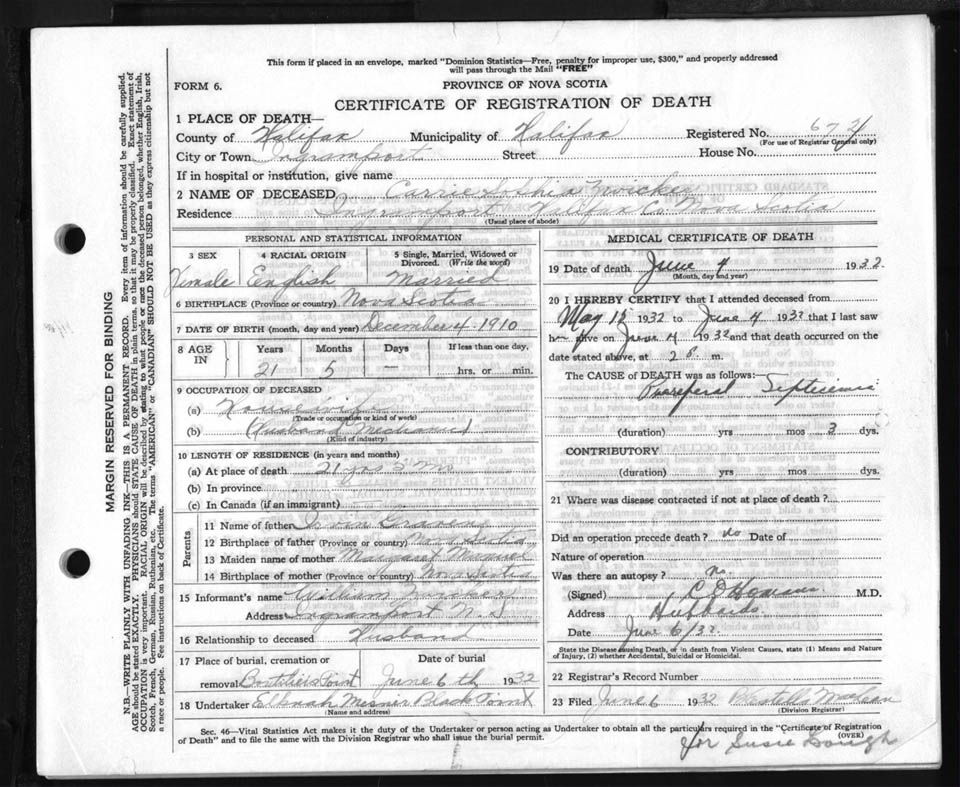 This form if placed in an envelope, marked "Dominion Statistics—Free, penalty for improper use, $300," and properly addressed
will pass through the Mail "FREE"
FORM 6.
PROVINCE OF NOVA SCOTIA
CERTIFICATE OF REGISTRATION OF DEATH
1 PLACE OF DEATH—
County of Halifax Municipality of Halifax Registered No. 672
(For use of Registrar General only)
City or Town Ingramport Street House No.
If in hospital or institution, give name
2 NAME OF DECEASED Carrie Sophia Zwicker
Residence Ingramport Halifax Co. Nova Scotia
(Usual place of abode)
PERSONAL AND STATISTICAL INFORMATION
3 SEX 4 RACIAL ORIGIN 5 Single, Married, Widowed or
Divorced. (Write the word)
Female English Married
6 BIRTHPLACE (Province or country) Nova Scotia
7 DATE OF BIRTH (month, day and year) December 4 1910
8 AGE IN Years Months Days If less than one day,
21 5 — hrs. or min.
9 OCCUPATION OF DECEASED
(a) Housewife
Trade or occupation or kind of work)
(b) (Husband Mechanic)
(Kind of industry)
10 LENGTH OF RESIDENCE (in years and months)
(a) At place of death 21 yrs 5 Mo
(b) In province
(c) In Canada (if an immigrant)
Parents
11 Name of father Craven
12 Birthplace of father (Province or country) Nova Scotia
13 Maiden name of mother Margaret
14 Birthplace of mother (Province or country) Nova Scotia
15 Informant's name William Zwicker
Address Ingramport N.S
16 Relationship to deceased Husband
17 Place of burial, cremation or Date of burial
removal Boutiliers Point June 6th 1932
18 Undertaker Elknah Mesner Black Point
(Name and address)
MEDICAL CERTIFICATE OF DEATH
19 Date of death June 4 1932
(Month, day and year)
20 I HEREBY CERTIFY that I attended deceased from
May 15 1932 to June 4 1932 that I last saw
her alive on June 4 1932 and that death occurred on the
date stated above, at 2 m.
The CAUSE OF DEATH was as follows:
Puerperal Septicemia
(duration) yrs mos 3 dys.
CONTRIBUTORY
(duration) yrs mos dys.
21 Where was disease contracted if not at place of death?
Did an operation precede death? no Date of
Nature of operation
Was there an autopsy? no
(Signed) M.D.
Address Hubbards
Date June 6/32
State the Disease causing Death, or in death from Violent Causes, state (1) Means and Nature
of Injury, (2) whether Accidental, Suicidal or Homicidal.
22 Registrar's Record Number
23 Filed June 6 1932 MacLean
(Division Registrar)
for Susie Gough
Sec. 46—Vital Statistics Act makes it the duty of the Undertaker or person acting as Undertaker to obtain all the particulars required in the "Certificate of Registration
of Death" and to file the same with the Division Registrar who shall issue the burial permit. (OVER)
MARGIN RESERVED FOR BINDING
N.B.—WRITE PLAINLY WITH UNFADING INK—THIS IS A PERMANENT RECORD. Every item of information should be carefully supplied.
AGE should be stated EXACTLY. PHYSICIANS should STATE CAUSE OF DEATH in plain terms, so that it may be properly classified. Exact statement of
OCCUPATION is very important. RACIAL ORIGIN will be described by stating to what people or race the deceased person belonged, whether English, Irish,
Scotch, French, German, Russian, Ruthenian, etc. The terms "AMERICAN" or "CANADIAN" SHOULD NOT BE USED as they express citizenship but not
a race or people. Fee instructions on back of Certificate.